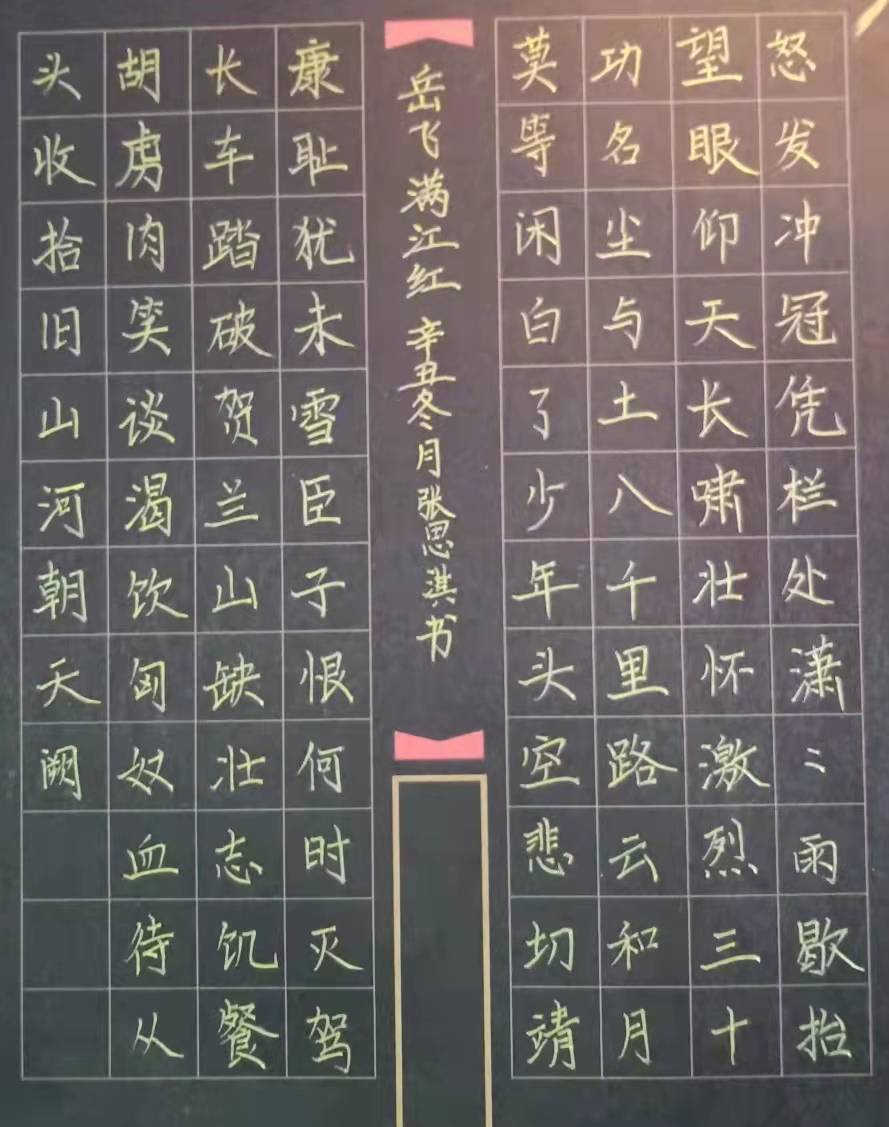 怒发冲冠凭栏处潇〻雨歇抬
望眼仰天长啸壮怀激烈三十
功名尘与土八千里路云和月
莫等闲白了少年头空悲切靖
康耻犹未雪臣子恨何时灭驾
长车踏破贺兰山缺壮志饥餐
胡虏肉笑谈渴饮匈奴血待从
头收拾旧山河朝天阙
岳飞满江红 辛丑冬月张思淇书